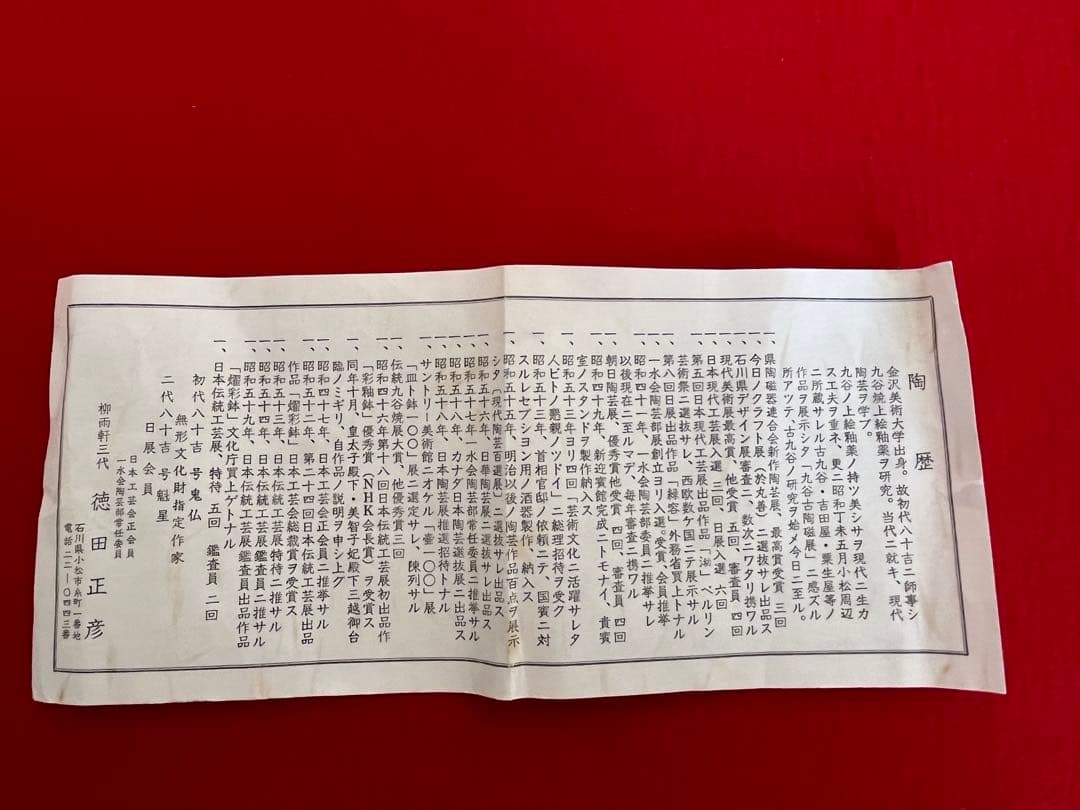 陶歴
金沢美術大学出身。故初代八十吉ニ師事シ
九谷焼上絵釉薬ヲ研究。当代ニ就キ、現代
陶芸ヲ学ブ。
九谷ノ上絵釉薬ノ持ツ美シサヲ現代ニ生カ
ス工夫ヲ重ネ、更ニ昭和丁未五月小松周辺
ニ所蔵サレル古九谷・吉田屋・粟生屋等ノ
作品ヲ展示シタ「九谷古陶磁展」ニ感ズル
所アッテ、古九谷ノ研究ヲ始メ今日ニ至ル。
一、県陶磁器連合会新作陶芸展、最高賞受賞 三回
一、今日ノクラフト展(於丸善)ニ選抜サレ出品ス
一、石川県デザイン展審査ニ、数次ニワタリ携ワル
一、現代美術展最高賞、他受賞 五回、審査員 四回
一、日本現代工芸展入選 三回、日展入選 六回
一、第五回日本現代工芸展出品作品「泑」ベルリン
芸術祭ニ選抜サレ、西欧数ケ国ニテ展示サル
一、第八回日展出品作品「緑容」外務省買上トナル
一、一水会陶芸部展創立ヨリ入選。受賞、会員推挙
一、昭和四十一年、一水会陶芸部委員ニ推挙サレ
以後現在ニ至ルマデ、毎年審査ニ携ワル
一、朝日陶芸展、優秀賞他受賞 四回、審査員 四回
一、昭和四十九年、新迎賓館完成ニトモナイ、貴賓
室ノスタンドヲ製作納入ス
一、昭和五十三年ヨリ四回「芸術文化ニ活躍サレタ
人ビトノ懇親ノツドイ」ニ総理招待ヲ受ク
一、昭和五十三年、首相官邸ノ依頼ニテ、国賓ニ対
スルレセプション用ノ酒器製作、納入ス
一、昭和五十五年、明治以後ノ陶芸作品百点ヲ展示
シタ〔現代陶芸百選展〕ニ選抜サレ出品ス
一、昭和五十六年、日華陶芸展ニ選抜サレ出品ス
一、昭和五十七年、一水会陶芸部常任委員ニ推挙サル
一、昭和五十八年、カナダ日本陶芸選抜展ニ出品ス
一、昭和五十八年、日本陶芸展推選招待トナル
一、サントリー美術館ニオケル「壷一〇〇」展
「皿ト鉢一〇〇」展ニ選定サレ、陳列サル
一、伝統九谷焼展大賞、他優秀賞三回
一、昭和四十六年第十八回日本伝統工芸展初出品作
「彩釉鉢」優秀賞(NHK会長賞)ヲ受賞ス
一、同年十月、皇太子殿下・美智子妃殿下三越御台
臨ノミギリ、自作品ノ説明ヲ申シ上グ
一、昭和四十七年、日本工芸会正会員ニ推挙サル
一、昭和五十二年、第二十四回日本伝統工芸展出品
作品「燿彩鉢」日本工芸会総裁賞ヲ受賞ス
一、昭和五十三年、日本伝統工芸展特待ニ推サル
一、昭和五十四年、日本伝統工芸展鑑査員ニ推サル
一、昭和五十九年、日本伝統工芸展鑑査員出品作品
「燿彩鉢」文化庁買上ゲトナル
一、日本伝統工芸展、特待 五回 鑑査員 二回
初代八十吉 号鬼仏
無形文化財指定作家
二代八十吉 号魁星
日展会員
日本工芸会正会員
一水会陶芸部常任委員
柳雨軒三代 徳田正彦
石川県小松市糸町一番地
電話 二二-〇四四三番